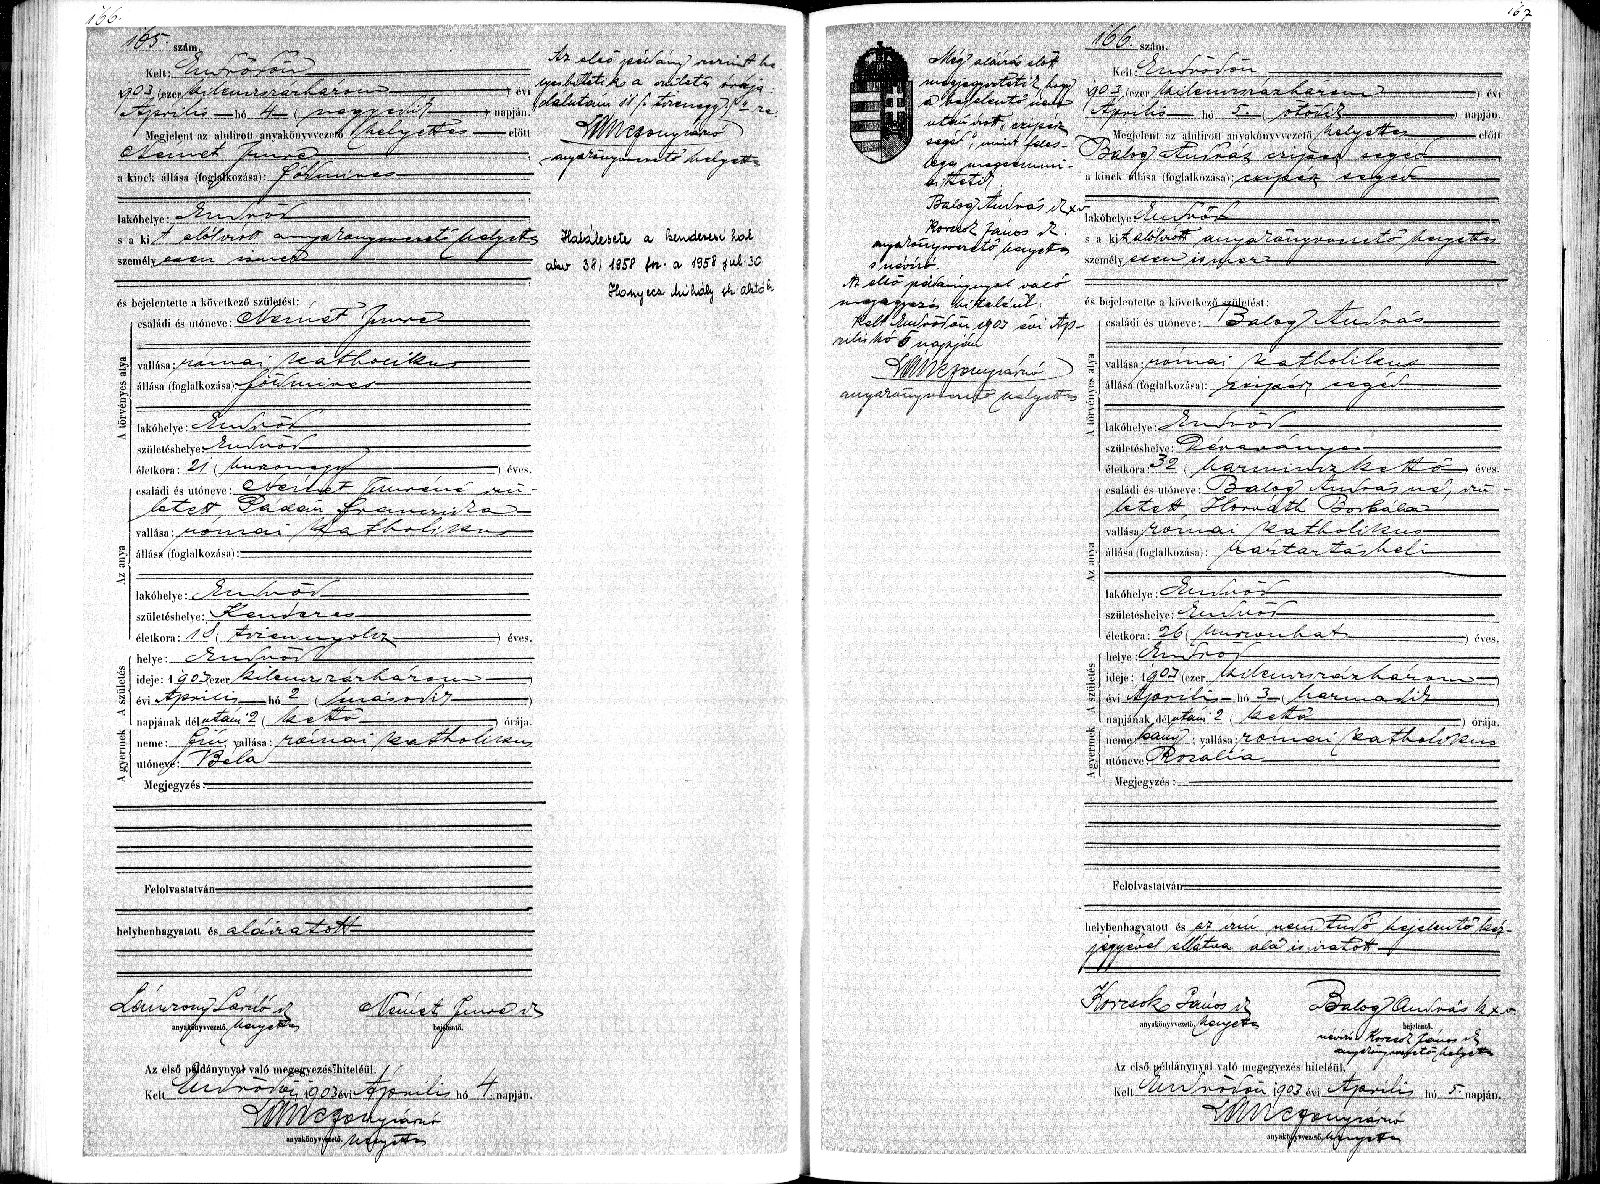 166.
165. szám.
Kelt: Endrődön
1903 (ezer kilenczszázhárom ) évi
Április hó 4 ( negyedik ) napján.
Megjelent az alulirott anyakönyvvezető helyettes előtt
Német Imre
a kinek állása (foglalkozása): földmives
lakóhelye: Endrőd
s a kit alólirott anyakönyvvezető helyettes
személyesen ismer
és bejelentette a következő születést:
A törvényes atyja
családi és utóneve: Német Imre
vallása: római katholikus
állása (foglalkozása): földmives
lakóhelye: Endrőd
születéshelye: Endrőd
életkora: 21 ( huszonegy ) éves.
Az anya
családi és utóneve: Német Imréné szü-
letett Padán Francziska
vallása: római katholikus
állása (foglalkozása):
lakóhelye: Endrőd
születéshelye: Kenderes
életkora: 18 ( tizennyolcz ) éves.
A gyermek A születés
helye: Endrőd
ideje: 1903 (ezer kilenczszázhárom )
évi Április hó 2 ( második )
napjának délutáni 2 ( kettő ) órája.
neme: fiú; vallása: római katholikus
utóneve: Béla
Megjegyzés:
Felolvastatván
helybenhagyatott és aláiratott
Lánczony Sándor sk
anyakönyvvezető. helyettes
Német Imre sk
bejelentő.
Az első példánynyal való megegyezés hiteléül.
Kelt Endrődön 1903 évi Április hó 4 napján.
anyakönyvvezető. helyettes
Az első példány szerint he
lyesbittetik a születés órája:
anyakönyvvezető helyettes
Halálesete a kenderesi hal
akv 38/1958 fsz. a 1958 júl. 30
Hanyecz Mihály sk
167
166. szám.
Kelt: Endrődön
1903 (ezer kilenczszázhárom ) évi
Április hó 5 ( ötödik ) napján.
Megjelent az alulirott anyakönyvvezető helyettes előtt
Balog András czipész segéd
a kinek állása (foglalkozása): czipész segéd
lakóhelye: Endrőd
s a kit alólirott anyakönyvvezető helyettes
személyesen ismer
és bejelentette a következő születést:
A törvényes atyja
családi és utóneve: Balog András
vallása: római katholikus
állása (foglalkozása): czipész segéd
lakóhelye: Endrőd
születéshelye: Dévaványa
életkora: 32 ( harminczkettő ) éves.
Az anya
családi és utóneve: Balog Andrásné, szü-
letett Horváth Borbála
vallása: római katholikus
állása (foglalkozása): háztartásbeli
lakóhelye: Endrőd
születéshelye: Endrőd
életkora: 26 ( huszonhat ) éves.
A gyermek A születés
helye: Endrőd
ideje: 1903 (ezer kilenczszázhárom )
évi Április hó 3 ( harmadik )
napjának délutáni 2 ( kettő ) órája.
neme: leány; vallása: római katholikus
utóneve: Rozália
Megjegyzés:
Felolvastatván
helybenhagyatott és az irni nem tudó bejelentő kéz-
jegyével ellátva alá is iratott
Korcsok János sk
anyakönyvvezető. helyettes
Balog András k x v
bejelentő.
névíró Korcsok János sk
anyakönyvvezető helyettes
Az első példánynyal való megegyezés hiteléül.
Kelt Endrődön 1903 évi Április hó 5 napján.
anyakönyvvezető. helyettes
Még aláirás előtt
megjegyeztetik, hogy
a bejelentő neve
után írt „czipész
segéd", mint feles-
leges megsemmi-
síttetik.
Balog András k x v
Korcsok János sk.
anyakönyvvezető helyettes
s névíró.
Az első példánynyal való
megegyezés hiteléül.
Kelt Endrődön 1903 évi Áp-
rilis hó 5 napján
anyakönyvvezető helyettes